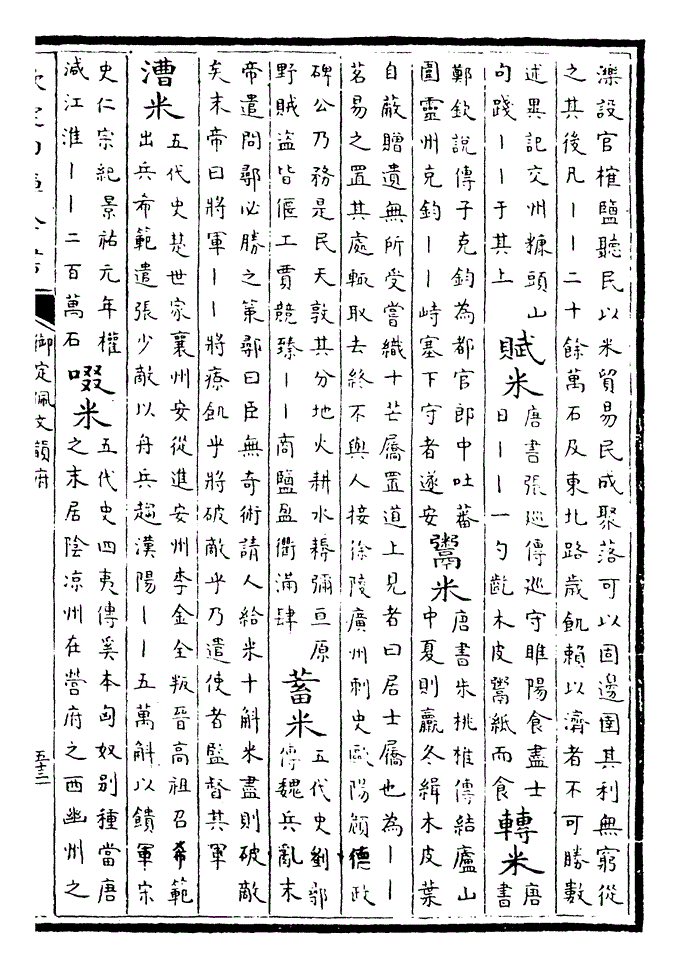 濼設官榷鹽聽民以米貿易民成聚落可以固邊圉其利無窮從
之其後凡丨丨二十餘萬石及東北路歲飢賴以濟者不可勝數
述異記交州糠頭山
句踐丨丨于其上
賦米
唐書張廵傳廵守睢陽食盡士
日丨丨一勺齕木皮鬻紙而食
轉米
唐
書
鄭欽說傳子克鈞為都官郎中吐蕃
圍靈州克鈞丨丨峙塞下守者遂安
鬻米
唐書朱桃椎傳結廬山
中夏則羸冬緝木皮葉
自蔽贈遺無所受嘗織十芒屩置道上見者曰居士屩也為丨丨
茗易之置其處輒取去終不與人接徐陵廣州刺史歐陽頠德政
碑公乃務是民天敦其分地火耕水耨彌亘原
野賊盜皆偃工賈競臻丨丨商鹽盈衢滿肆
蓄米
五代史劉鄩
傳魏兵亂末
帝遣問鄩必勝之策鄩曰臣無奇術請人給米十斛米盡則破敵
矣末帝曰將軍丨丨將療飢乎將破敵乎乃遣使者監督其軍
漕米
五代史楚世家襄州安從進安州李金全叛晉高祖召希範
出兵希範遣張少敵以舟兵趨漢陽丨丨五萬斛以饋軍宗
史仁宗紀景祐元年權
減江淮丨丨二百萬石
啜米
五代史四夷傳奚本匈奴别種當唐
之末居陰凉州在營府之西幽州之
御定佩文韻府
五十三